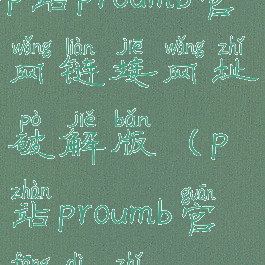 p站proumb官
wǎng liàn jiē wǎng zhǐ
网链接网址
pò jiě bǎn
破解版（p
zhàn guān
站proumb官